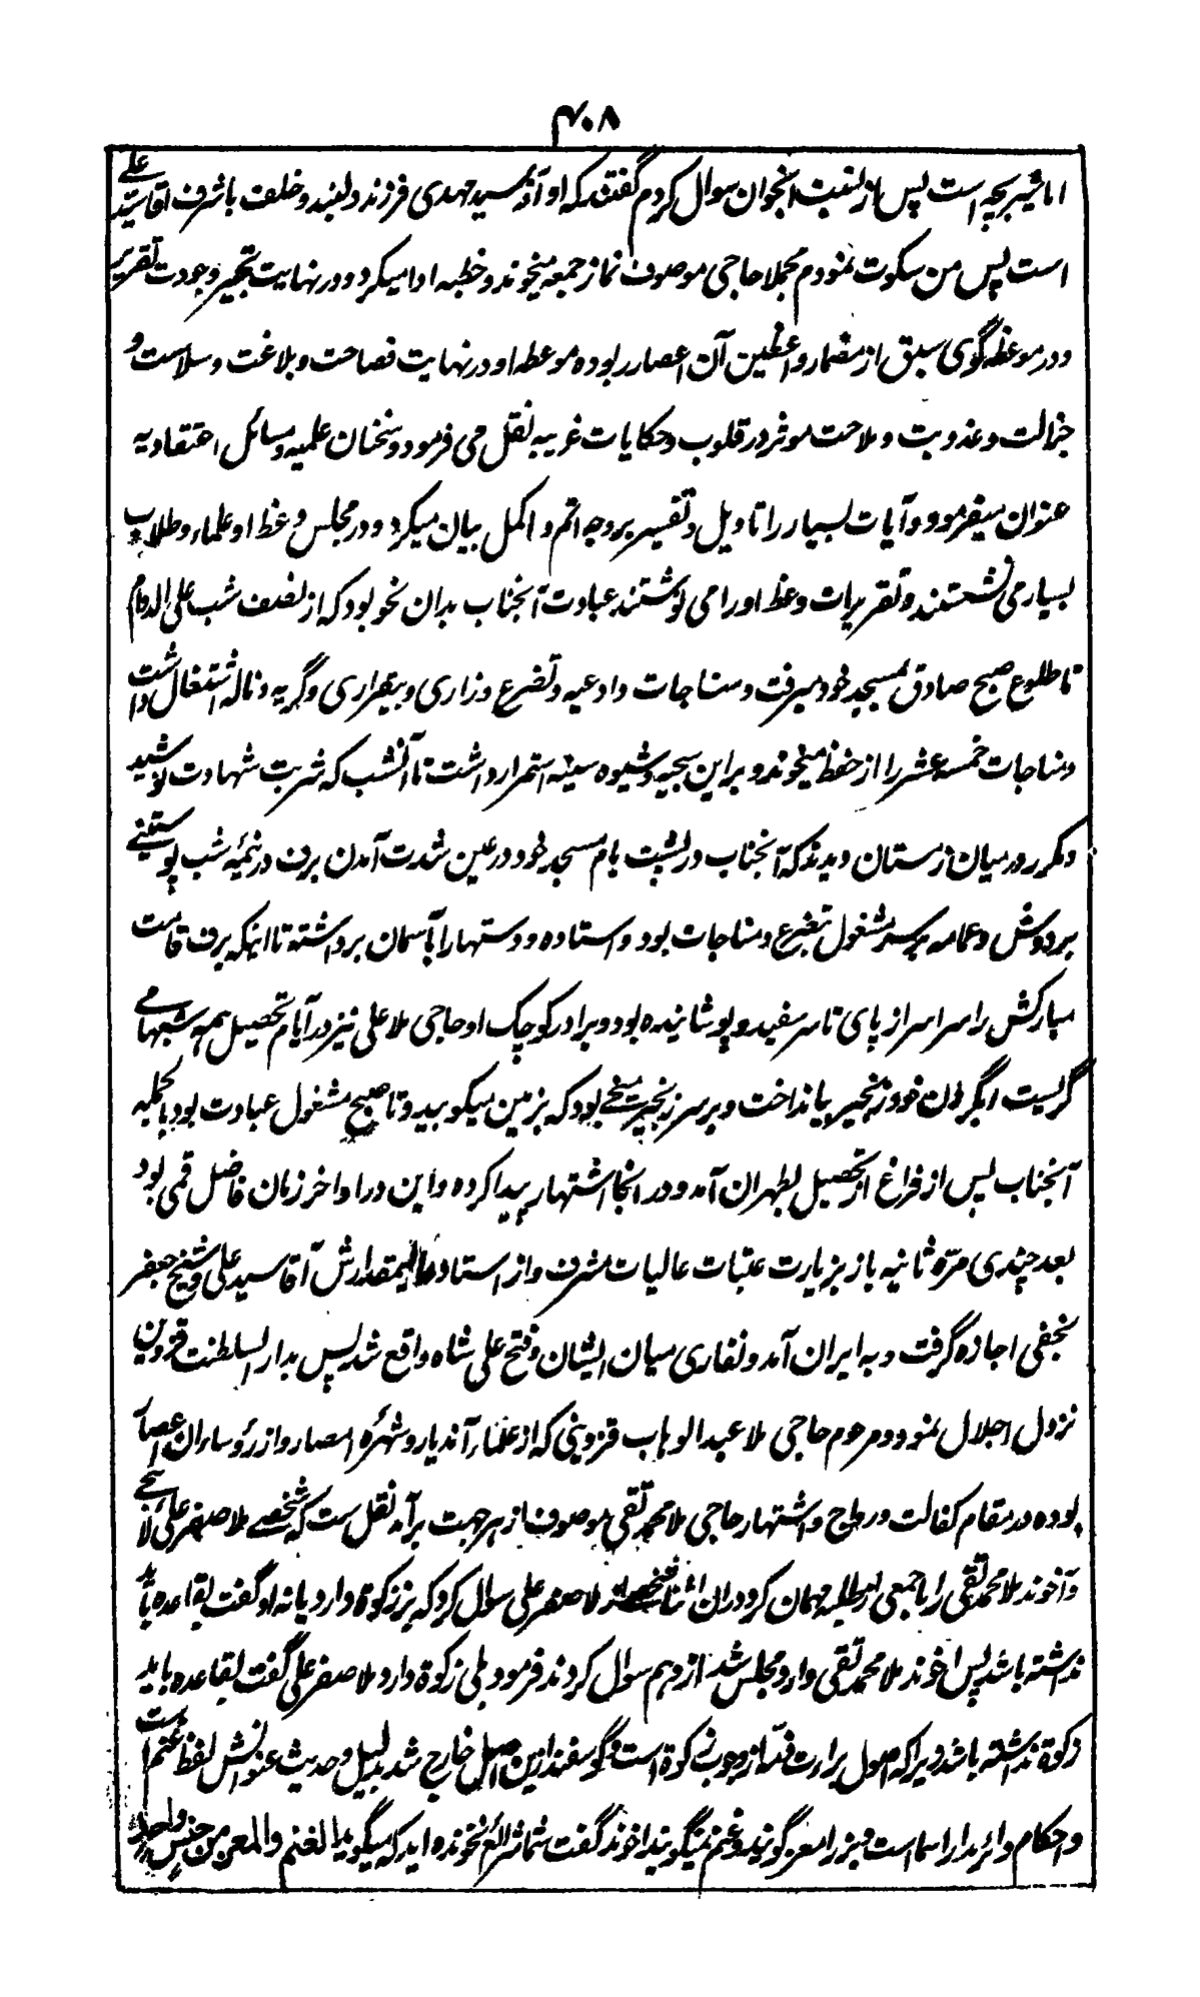 ۴۰۸
اما شیر بچه است پس از نسب انجوان سوال کردم گفتند که او آقا سید مهدی فرزند دلبند و خلف باشرف اقا سید علی
است پس من سکوت نمودم مجملا حاجی موصوف نماز جمعه میخوند و خطبه ادا میکرد و در نهایت تبحر و جودت تقریر
و در موعظه گوی سبق از مضمار واعظین آن اعصار ربوده موعظه او در نهایت فصاحت و بلاغت و سلاست و
جزالت و عذوبت و ملاحت موثر در قلوب و حکایات غریبه نقل می فرمود و سخنان علمیه و مسائل اعتقادیه
عنوان میفرمود و آیات بسیار را تاویل و تفسیر بر وجه اتم و اکمل بیان میکرد و در مجلس وعظ او علماء و طلاب
بسیار می نشستند و تقریرات وعظ او را می نوشتند عبادت آنجناب بدان نحو بود که از نصف شب علی الدوام
تا طلوع صبح صادق بمسجد خود میرفت و مناجات و ادعیه و تضرع و زاری و بیقراری و گریه و ناله اشتغال داشت
و مناجات خمسة عشر را از حفظ میخوند و بر این سجیه و شیوه سنیه استمرار داشت تا آنشب که شربت شهادت نوشید
و مکرر در میان زمستان دیدند که آنجناب در پشت بام مسجد خود در عین شدت آمدن برف در نیمه شب پوستینی
بر دوش و عمامه بر سر مشغول تضرع و مناجات بود و استاده و دستها را بآسمان برداشته تا اینکه برف قامت
مبارکش را سراسر از پای تا سر سفید و پوشانیده بود و برادر کوچک او حاجی ملا علی نیز در ایام تحصیل همه شبها می
گریست اگر خود زنجیر بپا انداخت و بر سر زنجیر میخی بود که بزمین میکوبید و تا صبح مشغول عبادت بود بالجمله
آنجناب پس از فراغ از تحصیل بطهران آمد و در انجا اشتهار پیدا کرده و این در اواخر زمان فاضل قمی بود
بعد چندی مرّه ثانیه باز بزیارت عتبات عالیات مشرف و از استاد عالیمقدارش آقا سید علی و شیخ جعفر
نجفی اجازه گرفت و به ایران آمد و نقاری میان ایشان و فتح علی شاه واقع شد پس بدار السلطنت قزوین
نزول اجلال نمود و مرحوم حاجی ملا عبد الوهاب قزوینی که از علماء آندیار و شهره امصار و از رؤسا ان اعصار
بوده در مقام کفالت و رواج و اشتهار حاجی ملا محمد تقی موصوف از هر جهت بر آمد نقل ست که شخصے ملا صفر علی لاهیجی
و آخوند ملا محمد تقی را با جمعی از طلبه مهمان کرد در ان اثنا شخصی از ملا صفر علی سوال کرد که بز زکوة دارد یا نه او گفت بقاعده باید
نداشته باشد پس اخوند ملا محمد تقی وارد مجلس شد از و هم سوال کردند فرمود بلی زکوة دارد ملا صفر علی گفت بقاعده باید
زکوة نداشته باشد زیرا که اصول برارت ذمه از وجوب زکوة است و گوسفند ازین اصل خارج شد بدلیل و حدیث عنوانش لفظ غنم است
و احکام دائر مدار اسما است و بز را معز گویند و غنم نمیگویند اخوند گفت شما شرائع نخونده اید که میگوید الغنم والمعز من جنس واحد